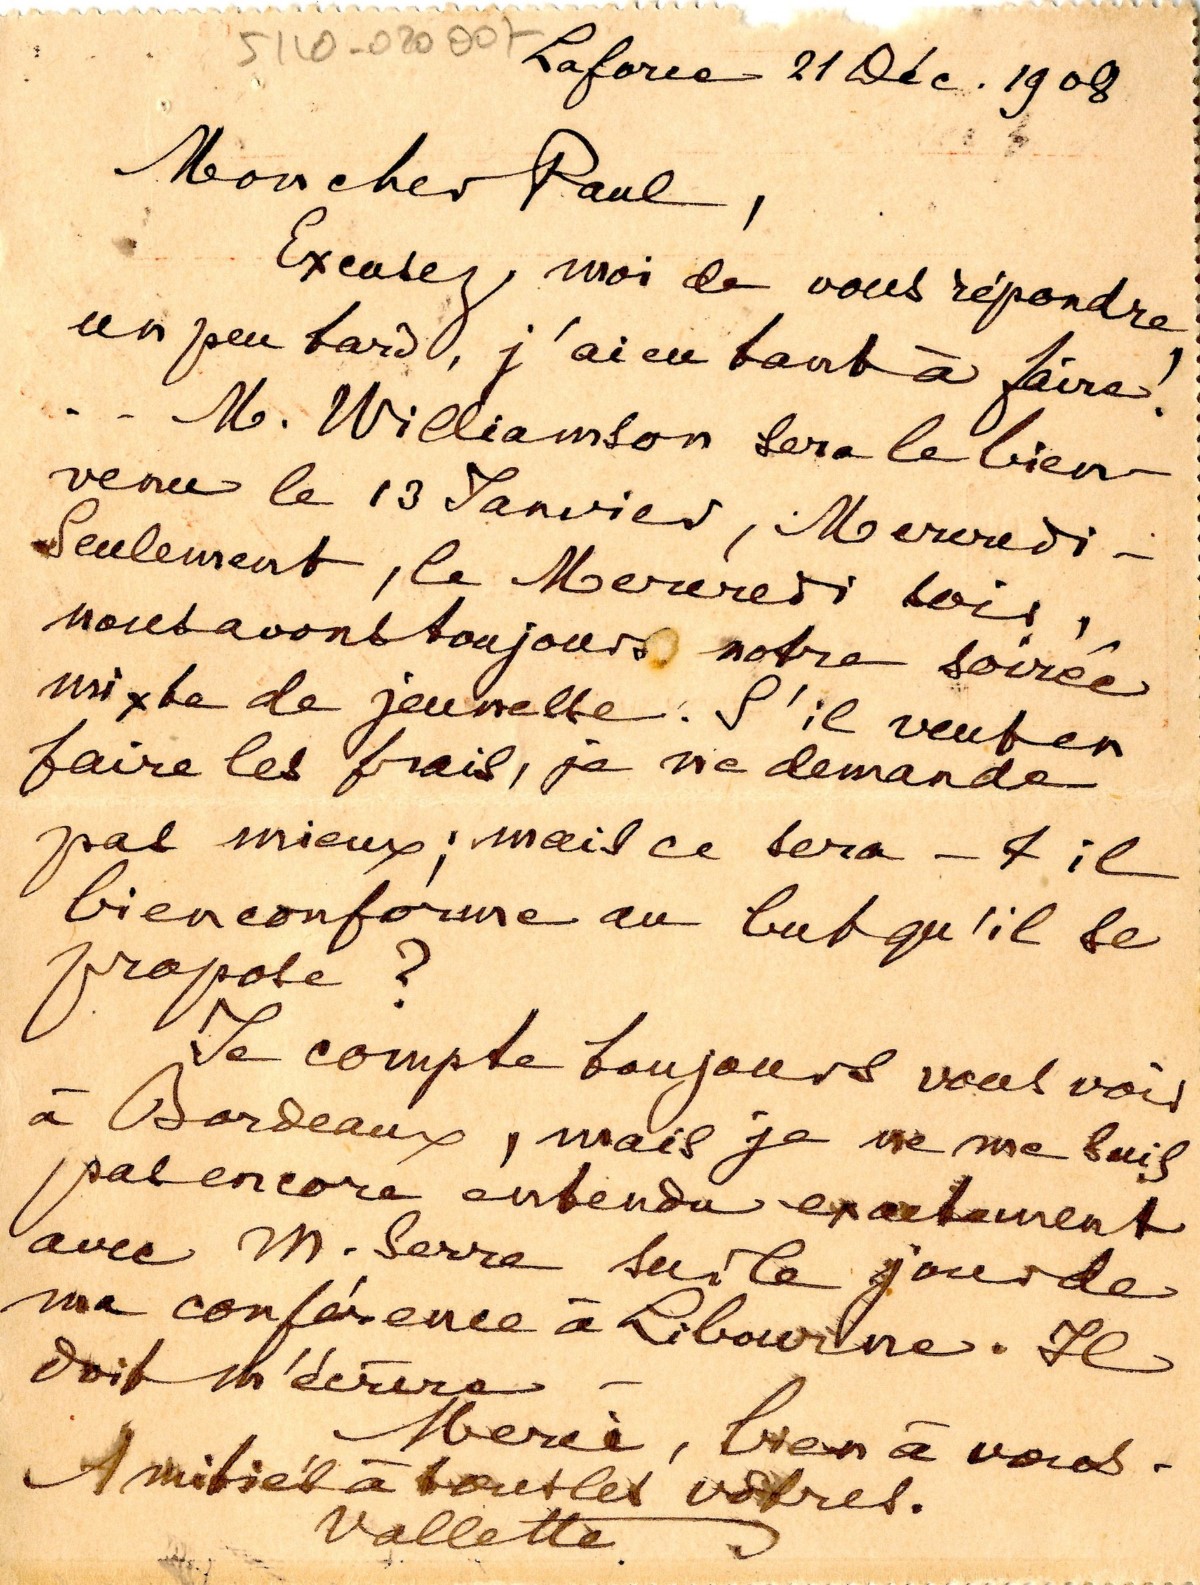 5140-020 007
Laforce 21 Déc. 1908
Mon cher Paul,
Excusez, moi de vous répondre
un peu tard, j'ai eu tant à faire!
.. M. Williamson sera le bien-
venu le 13 Janvier, Mercredi -
Seulement, le Mercredi soir,
nous avons toujours notre soirée
mixte de jeunesse. S'il veut en
faire les frais, je ne demande
pas mieux; mais ce sera-t il
bien conforme au but qu'il se
propose?
Je compte toujours vous voir
à Bordeaux, mais je ne me suis
pas encore entendu exactement
avec M. Serre sur le jour de
ma conférence à Libourne. Il
doit m'écrire -
Merci, bien à vous -
Amitiés à tous les vôtres.
Vallette